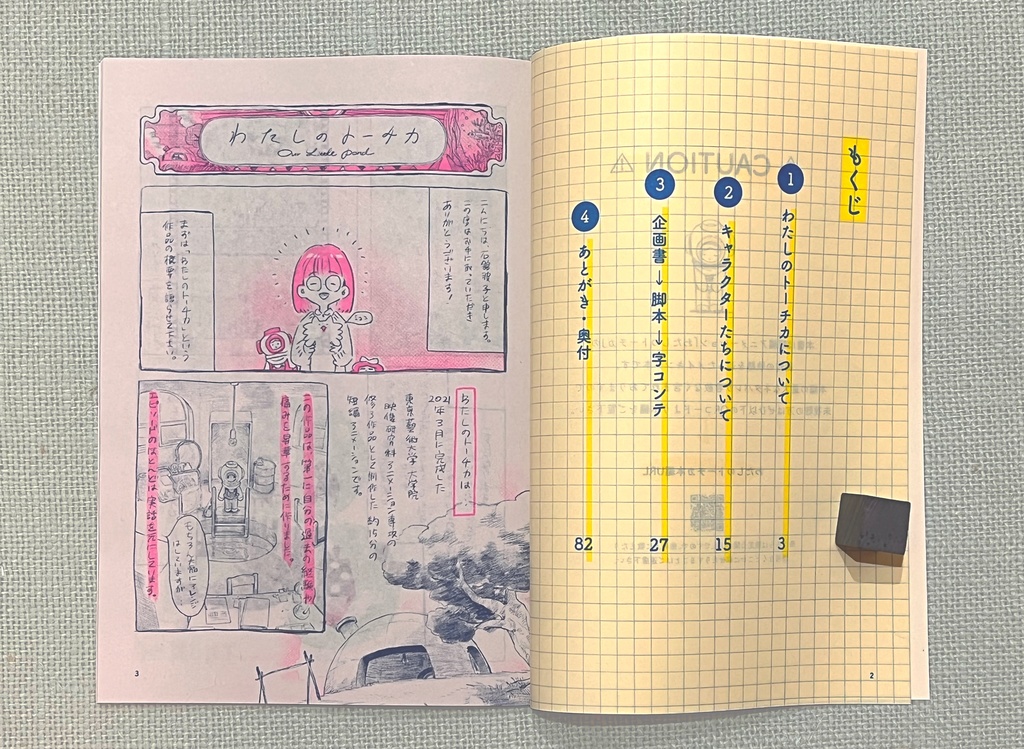 もくじ
1 わたしのトーチカについて 3
2 キャラクターたちについて 15
3 企画書→脚本→字コンテ 27
4 あとがき・奥付 82
2
わたしのトーチカ
Our Little Pond
こんにちは、石舘波子と申します。
この度はお手に取っていただき
ありがとうございます!
まずは、「わたしのトーチカ」という
作品の概要を語らせて下さい。
わたしのトーチカは…
2021年3月に完成した
東京藝術大学 大学院
映像研究科アニメーション専攻の
修了作品として制作した 約15分の
短編アニメーションです。
この作品は、第一に自分の過去の経験や
痛みを昇華するために作りました。
エピソードのほとんどは実話を元にしています。
もちろん大幅にアレンジ
はしていますが
3